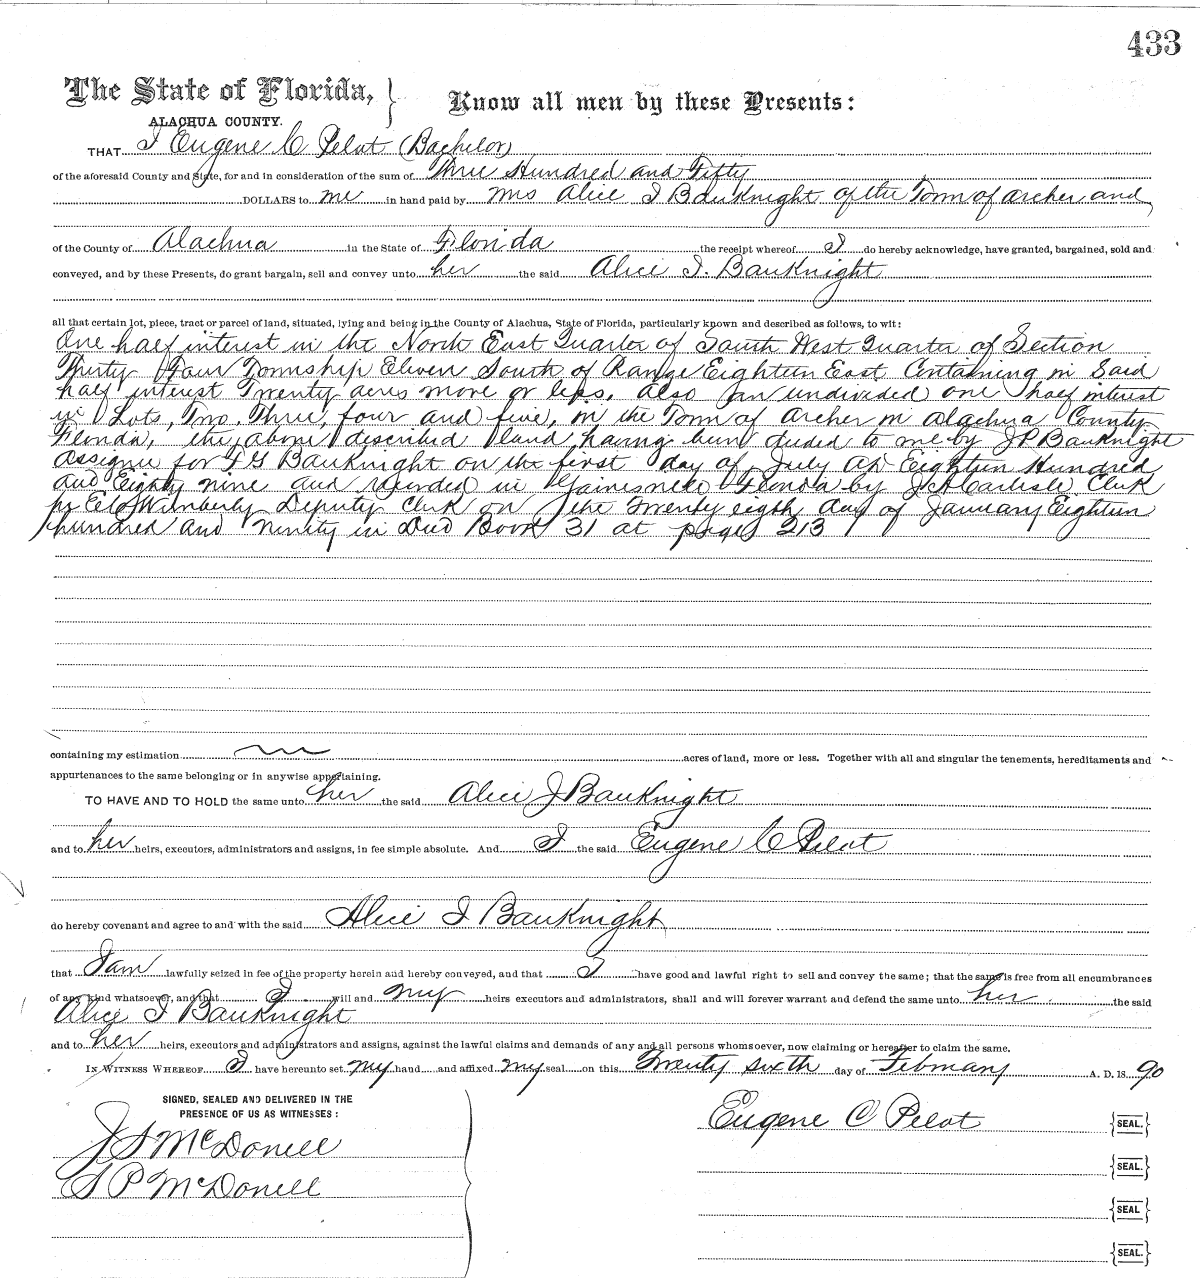 433
The State of Florida, } Know all men by these Presents:
ALACHUA COUNTY.
THAT I Eugene C Pelot (Bachelor)
of the aforesaid County and State, for and in consideration of the sum of Three Hundred and Fifty
DOLLARS to me in hand paid by Mrs Alice I BauKnight of the Town of Archer and
of the County of Alachua in the State of Florida the receipt whereof I do hereby acknowledge, have granted, bargained, sold and
conveyed, and by these Presents, do grant bargain, sell and convey unto her the said Alice I. BauKnight
all that certain lot, piece, tract or parcel of land, situated, lying and being in the County of Alachua, State of Florida, particularly known and described as follows, to wit:
One half interest in the North East Quarter of South West Quarter of Section
Thirty Four Township Eleven South of Range Eighteen East Containing in Said
half interest Twenty acres more or less, also an undivided one half interest
in Lots, Two, Three, four and five, in the Town of Archer in Alachua County
Florida, the above described land having been deeded to me by J P BauKnight
Assignee for T G BauKnight on the first day of July AD Eighteen Hundred
and Eighty nine and recorded in Gainesville Florida by J A Carlisle Clerk
pr Wimberly Deputy Clerk on the Twenty eigth day of January Eighteen
hundred and Ninety in Deed Book 31 at page 213
containing my estimation acres of land, more or less. Together with all and singular the tenements, hereditaments and
appurtenances to the same belonging or in anywise appertaining.
TO HAVE AND TO HOLD the same unto her the said Alice I BauKnight
and to her heirs, executors, administrators and assigns, in fee simple absolute. And I the said Eugene C Pelot
do hereby covenant and agree to and with the said Alice I BauKnight
that I am lawfully seized in fee of the property herein and hereby conveyed, and that I have good and lawful right to sell and convey the same; that the same is free from all encumbrances
of any kind whatsoever, and that I will and my heirs executors and administrators, shall and will forever warrant and defend the same unto her the said
Alice I BauKnight
and to her heirs, executors and administrators and assigns, against the lawful claims and demands of any and all persons whomsoever, now claiming or hereafter to claim the same.
IN WITNESS WHEREOF I have hereunto set my hand and affixed my seal on this Twenty sixth day of February A. D. 18 90
SIGNED, SEALED AND DELIVERED IN THE
PRESENCE OF US AS WITNESSES:
J S McDonell
S P McDonell
Eugene C Pelot {SEAL.}
{SEAL.}
{SEAL}
{SEAL.}